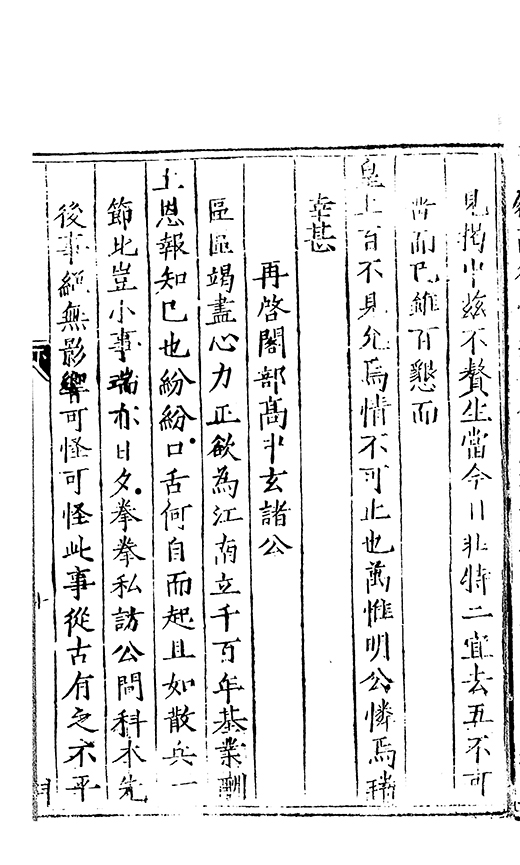 見揭中茲不贅生當今日非特二宜去五不可
留而已雖百懇而
皇上百不見允爲情不可止也萬惟明公憐焉瑞
幸甚
再啓閣部高中玄諸公
區區竭盡心力正欲為江南立千百年基業酬
上恩報知已也紛紛口舌何自而起且如散兵一
節此豈小事瑞亦日夕拳拳私訪公問科本先
後事絕無影響可怪可怪此事從古有之不平